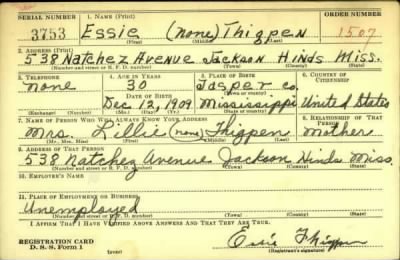 SERIAL NUMBER 1. NAME (Print) ORDER NUMBER
3753 Essie (none) Thigpen 1507
(First) (Middle) (Last)
2. ADDRESS (Print)
538 Natchez Avenue Jackson Hinds Miss.
(Number and street or R. F. D. number) (Town) (County) (State)
3. TELEPHONE 4. AGE IN YEARS 5. PLACE OF BIRTH 6. COUNTRY OF CITIZENSHIP
none 30 Jasper Co.
DATE OF BIRTH
Dec 12, 1909 Mississippi United States
7. NAME OF PERSON WHO WILL ALWAYS KNOW YOUR ADDRESS 8. RELATIONSHIP OF THAT PERSON
Mrs. Lillie (none) Thigpen Mother
(Mr., Mrs., Miss) (First) (Middle) (Last)
9. ADDRESS OF THAT PERSON
538 Natchez Avenue Jackson Hinds Miss.
(Number and street or R. F. D. number) (Town) (County) (State)
10. EMPLOYER'S NAME
11. PLACE OF EMPLOYMENT OR BUSINESS
Unemployed
(Number and street or R. F. D. number) (Town) (County) (State)
I AFFIRM THAT I HAVE VERIFIED ABOVE ANSWERS AND THAT THEY ARE TRUE.
REGISTRATION CARD
D. S. S. FORM 1
(over)
Essie Thigpen
(Registrant's signature)